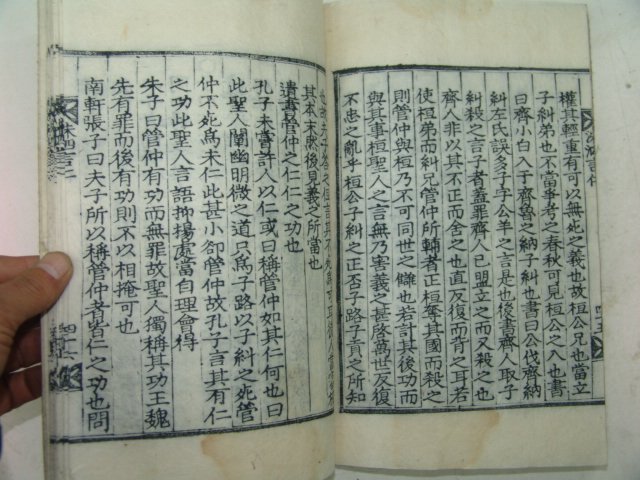 權其輕重有可以無死之義也故桓公兄也當立
子糾弟也不當爭考之春秋可見桓公之入也書
曰齊小白入于齊魯之納子糾也書曰公伐齊納
糾左氏誤多子字公羊之言是也後書齊人取子
糾殺之言子者蓋罪齊人已盟立之而又殺之也
齊人非以其不正而舍之也直反復而背之耳若
使桓弟而糾兄管仲所輔者正桓奪其國而殺之
則管仲與桓乃不可同世之讎也若計其後功而
與其事桓聖人之言無乃害義之甚啓萬世反復
不忠之亂乎桓公子糾之正否子路子貢之所知
其本末然後見義之所當也
遺書管仲之仁仁之功也
孔子未嘗許人以仁或曰稱管仲如其仁何也曰
此聖人闡幽明微之道只爲子路以子糾之死管
仲不死爲未仁此甚小卻管仲故孔子言其有仁
之功此聖人言語抑揚處當自理會得
朱子曰管仲有功而無罪故聖人獨稱其功王魏
先有罪而後有功則不以相掩可也
南軒張子曰夫子所以稱管仲者皆仁之功也問